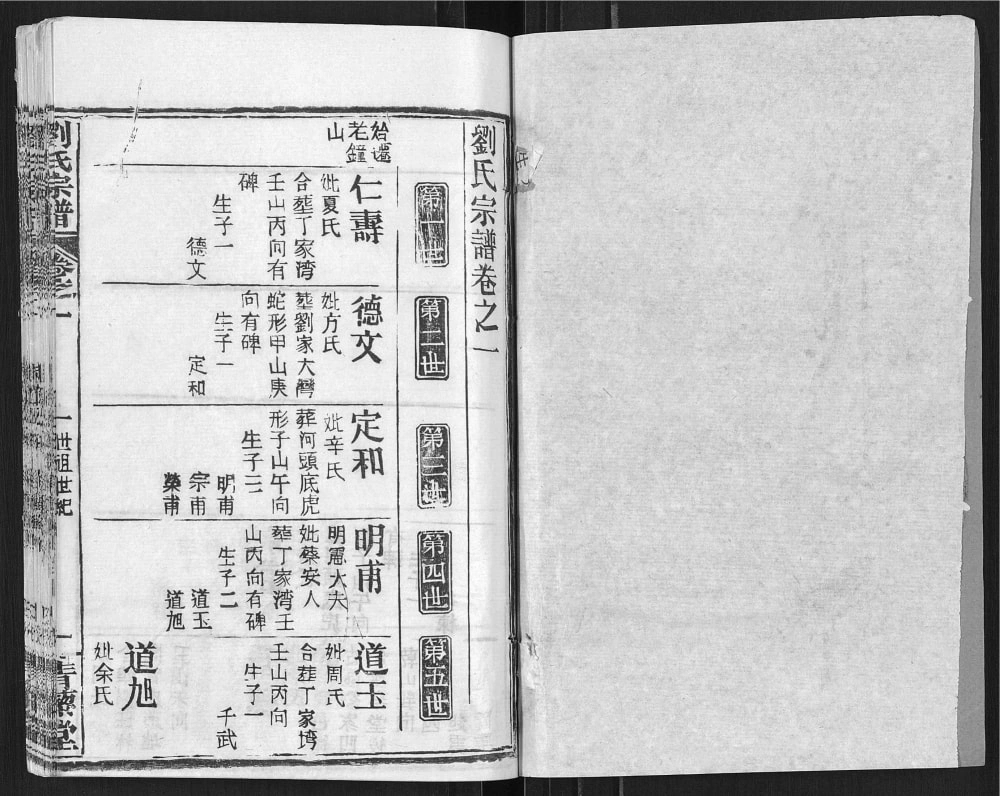 劉氏宗譜卷之一
第一世
第二世
第三世
第四世
第五世
始遷
老鐘
山
仁壽
妣夏氏
合葬丁家湾
壬山丙向有
碑
生子一
德文
德文
妣方氏
葬劉家大灣
蛇形甲山庚
向有碑
生子一
定和
定和
妣辛氏
葬河頭底虎
形子山午向
生子三
明甫
宗甫
榮甫
明甫
明憲大夫
妣蔡安人
葬丁家湾壬
山丙向有碑
生子二
道玉
道旭
道玉
妣周氏
合葬丁家塆
壬山丙向
生子一
千武
道旭
妣余氏
劉氏宗譜
卷之一
一世祖世紀
一
青藜堂